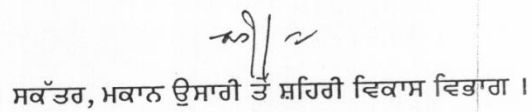 ਸਕੱਤਰ, ਮਕਾਨ ਉਸਾਰੀ ਤੇ ਸ਼ਹਿਰੀ ਵਿਕਾਸ ਵਿਭਾਗ ।